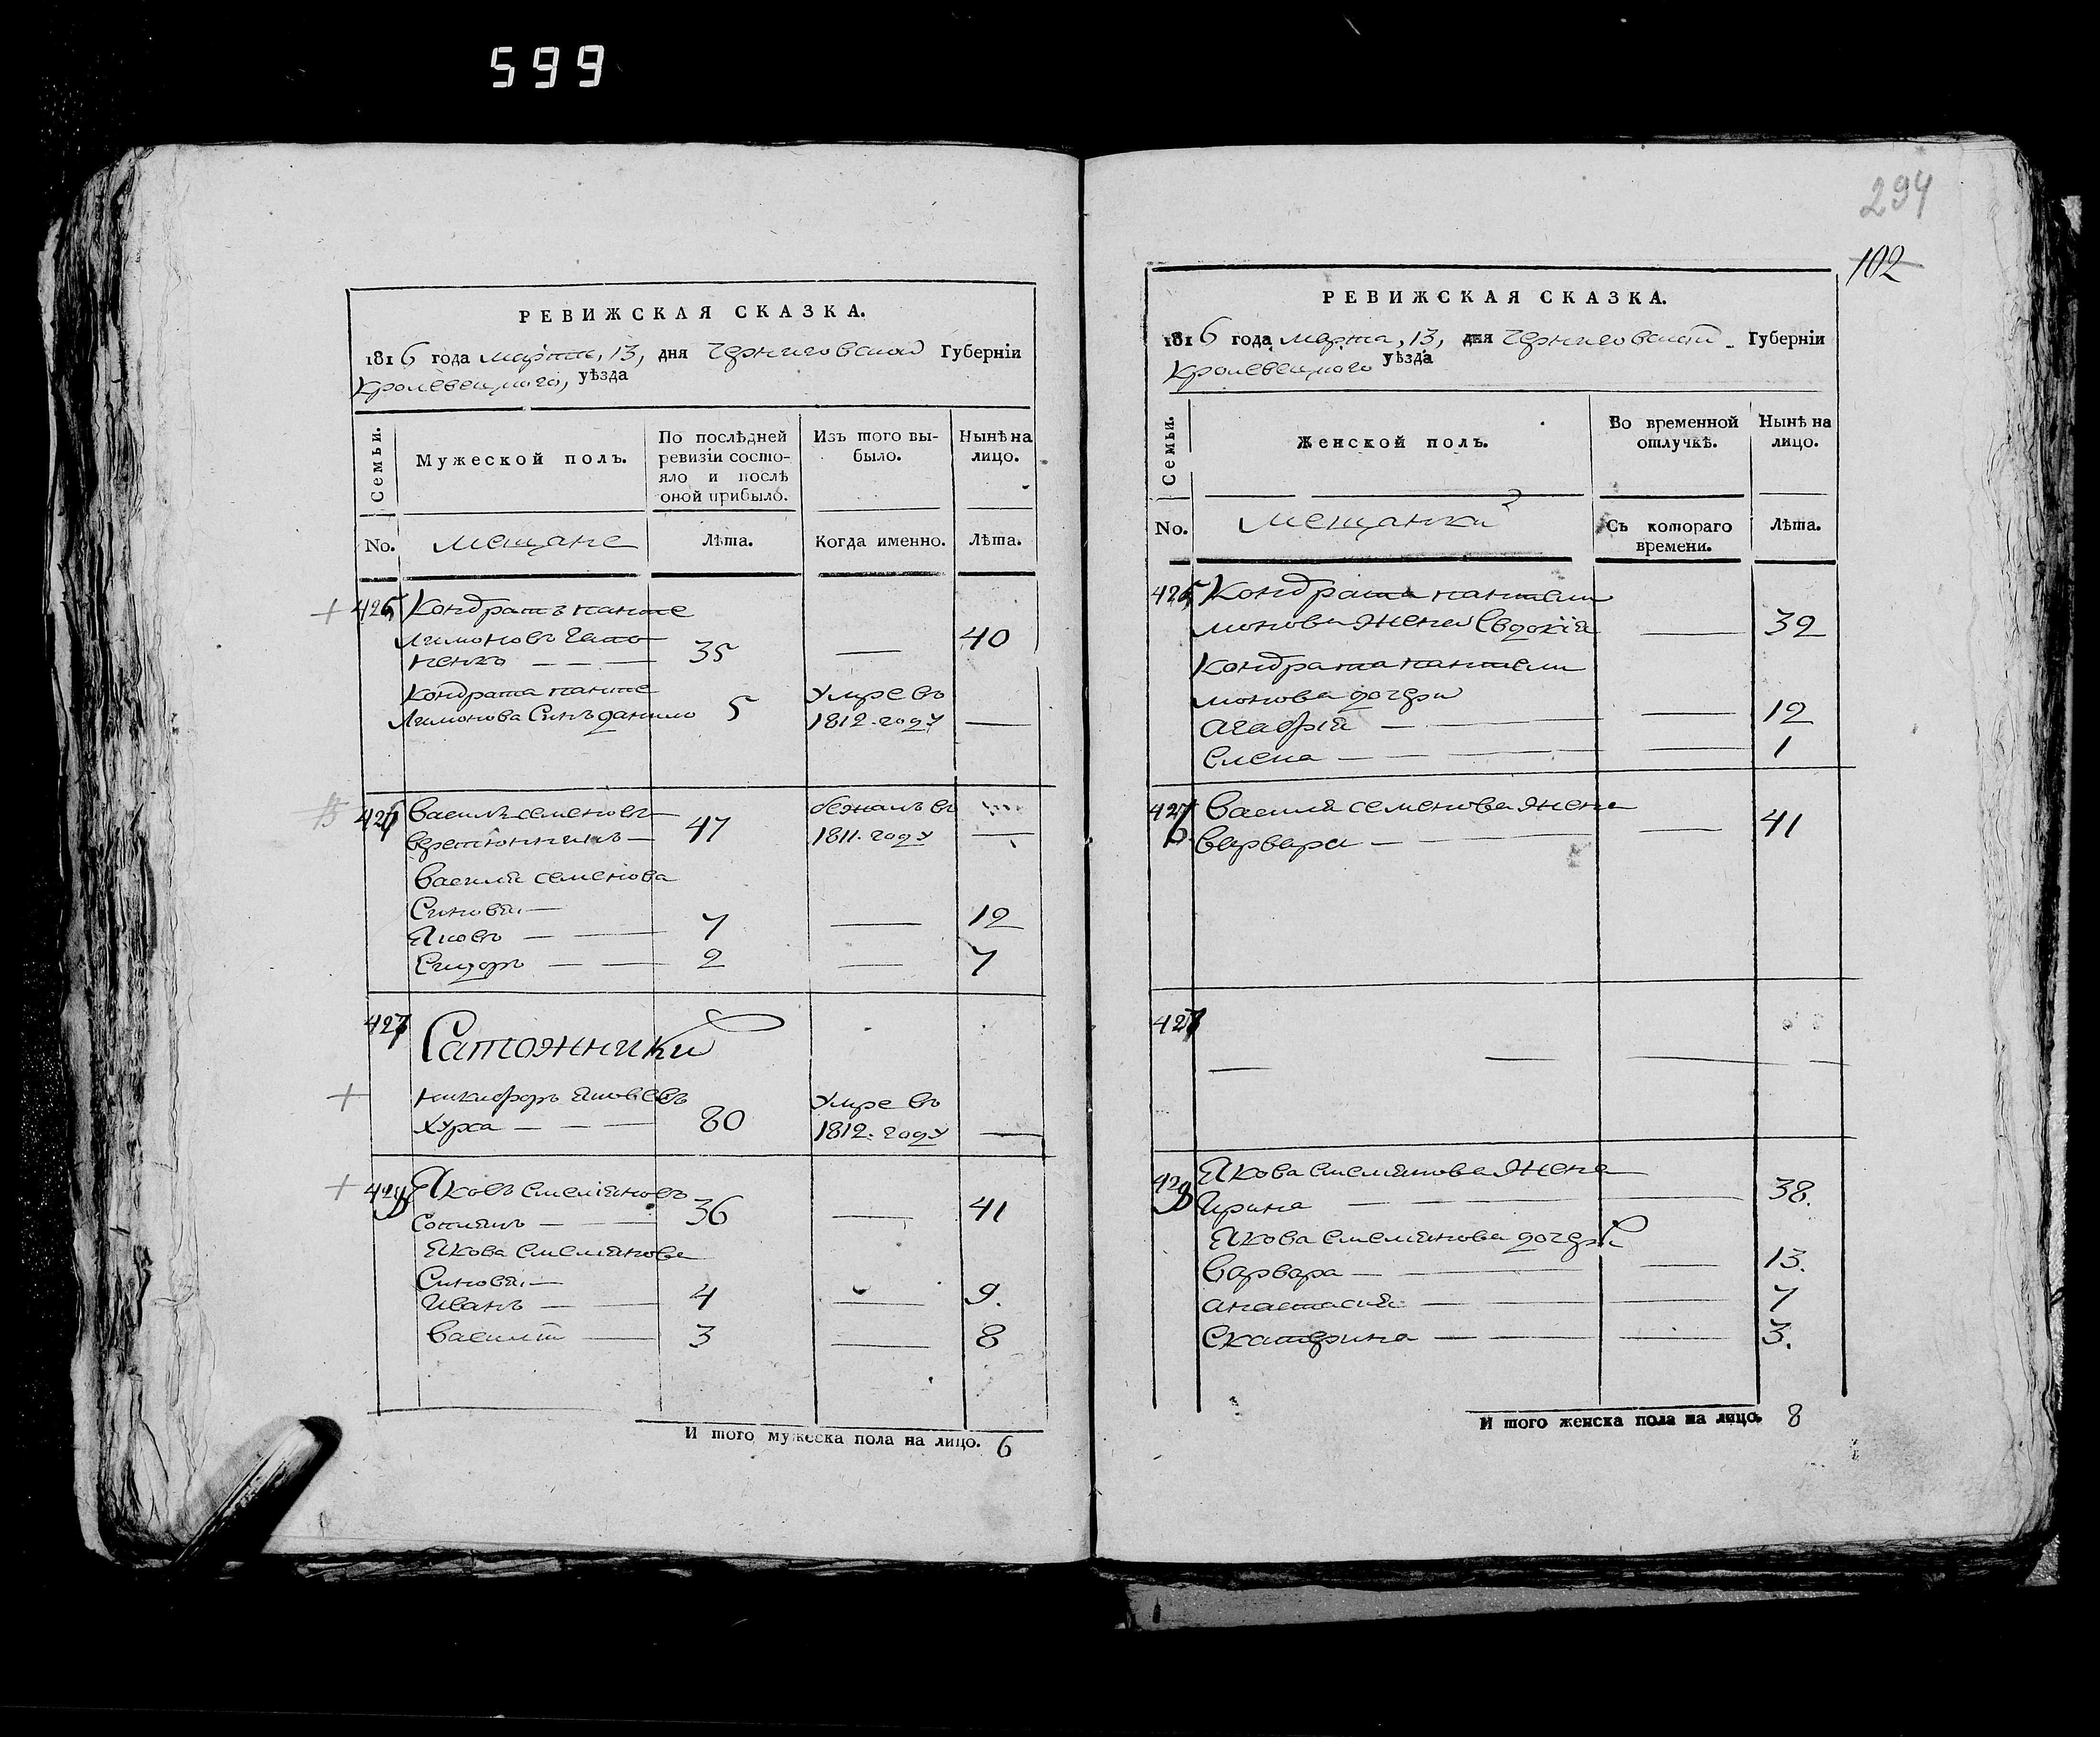 599
РЕВИЖСКАЯ СКАЗКА.
1816 года марта, 13, дня Черниговской Губерніи
Кролевецкого, уѣзда
Семьи.
Мужеской полъ.
По послѣдней ревизіи состояло и послѣ оной прибыло.
Изъ того выбыло.
Нынѣ на лицо.
No.
мещане
Лѣта.
Когда именно.
Лѣта.
425 Кондратъ панте
лимоновъ
35 — 40
Кондрата панте
лимонова Синъ данило 5 Умре въ
1812. году —
426 Василь семеновъ бежалъ въ
47 1811. году —
Василія семенова
Синовя. —
Яковъ — — 7 — 12
Сидоръ — — 2 — 7
427 Сапожники
Никифоръ Яковлевъ Умре въ
Хурса — — — 80 1812. году —
428 Яковъ емеляновъ
36 — 41
Якова емелянова
Синовя. —
Иванъ — — 4 — 9.
Василій — 3 — 8
И того мужеска пола на лицо. 6
294
102
РЕВИЖСКАЯ СКАЗКА.
1816 года марта, 13, дня Черниговской Губерніи
Кролевецкого уѣзда
Семьи.
Женской полъ.
Во временной отлучкѣ.
Нынѣ на лицо.
No.
мещанки
Съ котораго времени.
Лѣта.
425 Кондрата пантели
монова жена Евдокія — 32
Кондрата пантели
монова дочери
Агафія — — 12
Елена — — 1
426 Василія семенова жена
Варвара — — 41
427 — — — —
428 Якова емелянова жена
Ирина — — 38.
Якова емелянова дочери
Варвара — — 13.
Анастасія — — 7
Екатерина — — 3.
И того женска пола на лицо. 8